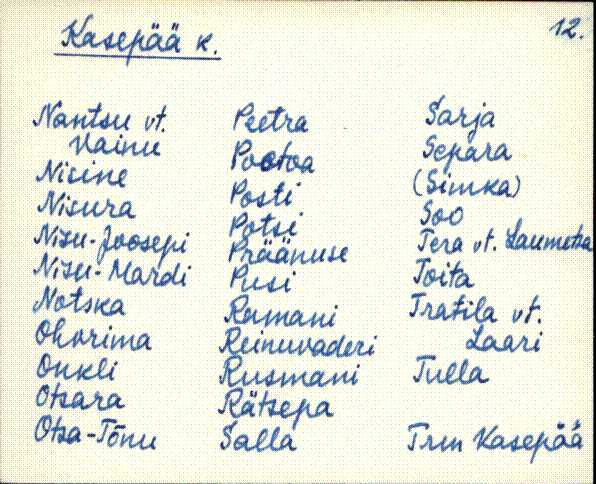 Kasepää k.
12.
Nantsu vt.
Vainu
Nisine
Nisura
Nisu-Joosepi
Nisu-Mardi
Notska
Ohvrima
Onkli
Otsara
Otsa-Tõnu
Peetra
Pootva
Posti
Potsi
Präänuse
Pusi
Ramani
Reinuvaderi
Rusmani
Rätsepa
Salla
Sarja
Separa
(Simka)
Soo
Tera vt. Laumetsa
Toita
Tratila vt.
Laari
Tulla
Trm Kasepää